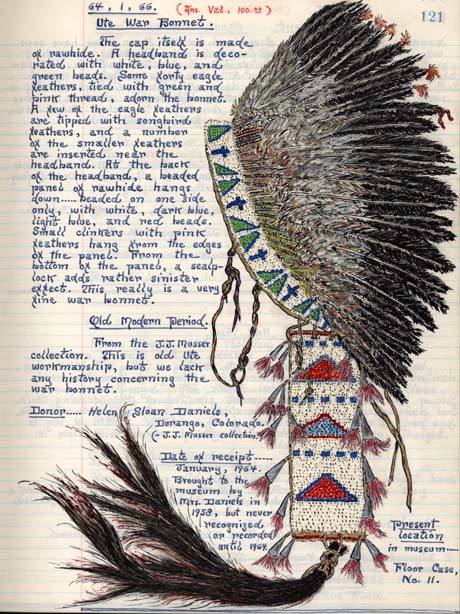 64, 1, 66. (Ins. Val., 100.00)
121
Ute War Bonnet.
The cap itself is made
of rawhide. A headband is deco-
rated with white, blue, and
green beads. Some forty eagle
feathers, tied with green and
pink thread, adorn the bonnet.
A few of the eagle feathers
are tipped with songbird
feathers, and a number
of the smaller feathers
are inserted near the
headband. At the back
of the headband, a beaded
panel of rawhide hangs
down.....beaded on one side
only, with white, dark blue,
light blue, and red beads.
Small clinkers with pink
feathers hang from the edges
of the panel. From the
bottom of the panel, a scalp-
lock adds rather sinister
effect. This really is a very
fine war bonnet.
Old Modern Period.
From the J.J. Musser
collection. This is old Ute
workmanship, but we lack
any history concerning the
war bonnet.
Donor..... Helen Sloan Daniels,
Durango, Colorado.
(- J.J. Musser collection.)
Date of receipt.....
January, 1964.
Brought to the
museum by
Mrs. Daniels in
1958, but never
recognized
or recorded
until 1964.
Present
location
in museum.....
Floor Case,
No. 11.